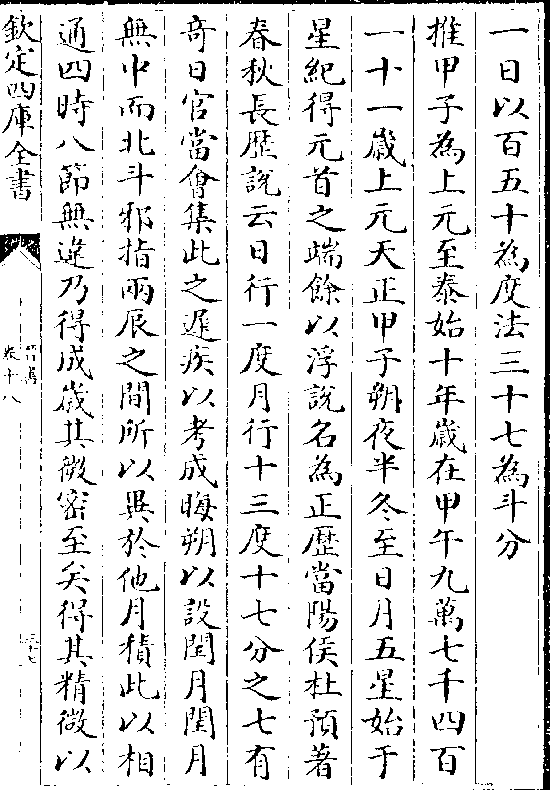 一日以百五十為度法三十七為斗分
推甲子為上元至泰始十年歲在甲午九萬七千四百
一十一歲上元天正甲子朔夜半冬至日月五星始于
星紀得元首之端餘以浮說名為正歷當陽侯杜預著
春秋長歷說云日行一度月行十三度十七分之七有
奇日官當㑹集此之遲疾以考成晦朔以設閏月閏月
無中而北斗邪指兩辰之間所以異於他月積此以相
通四時八節無違乃得成歲其微宻至矣得其精微以
欽定四庫全書
卷十八